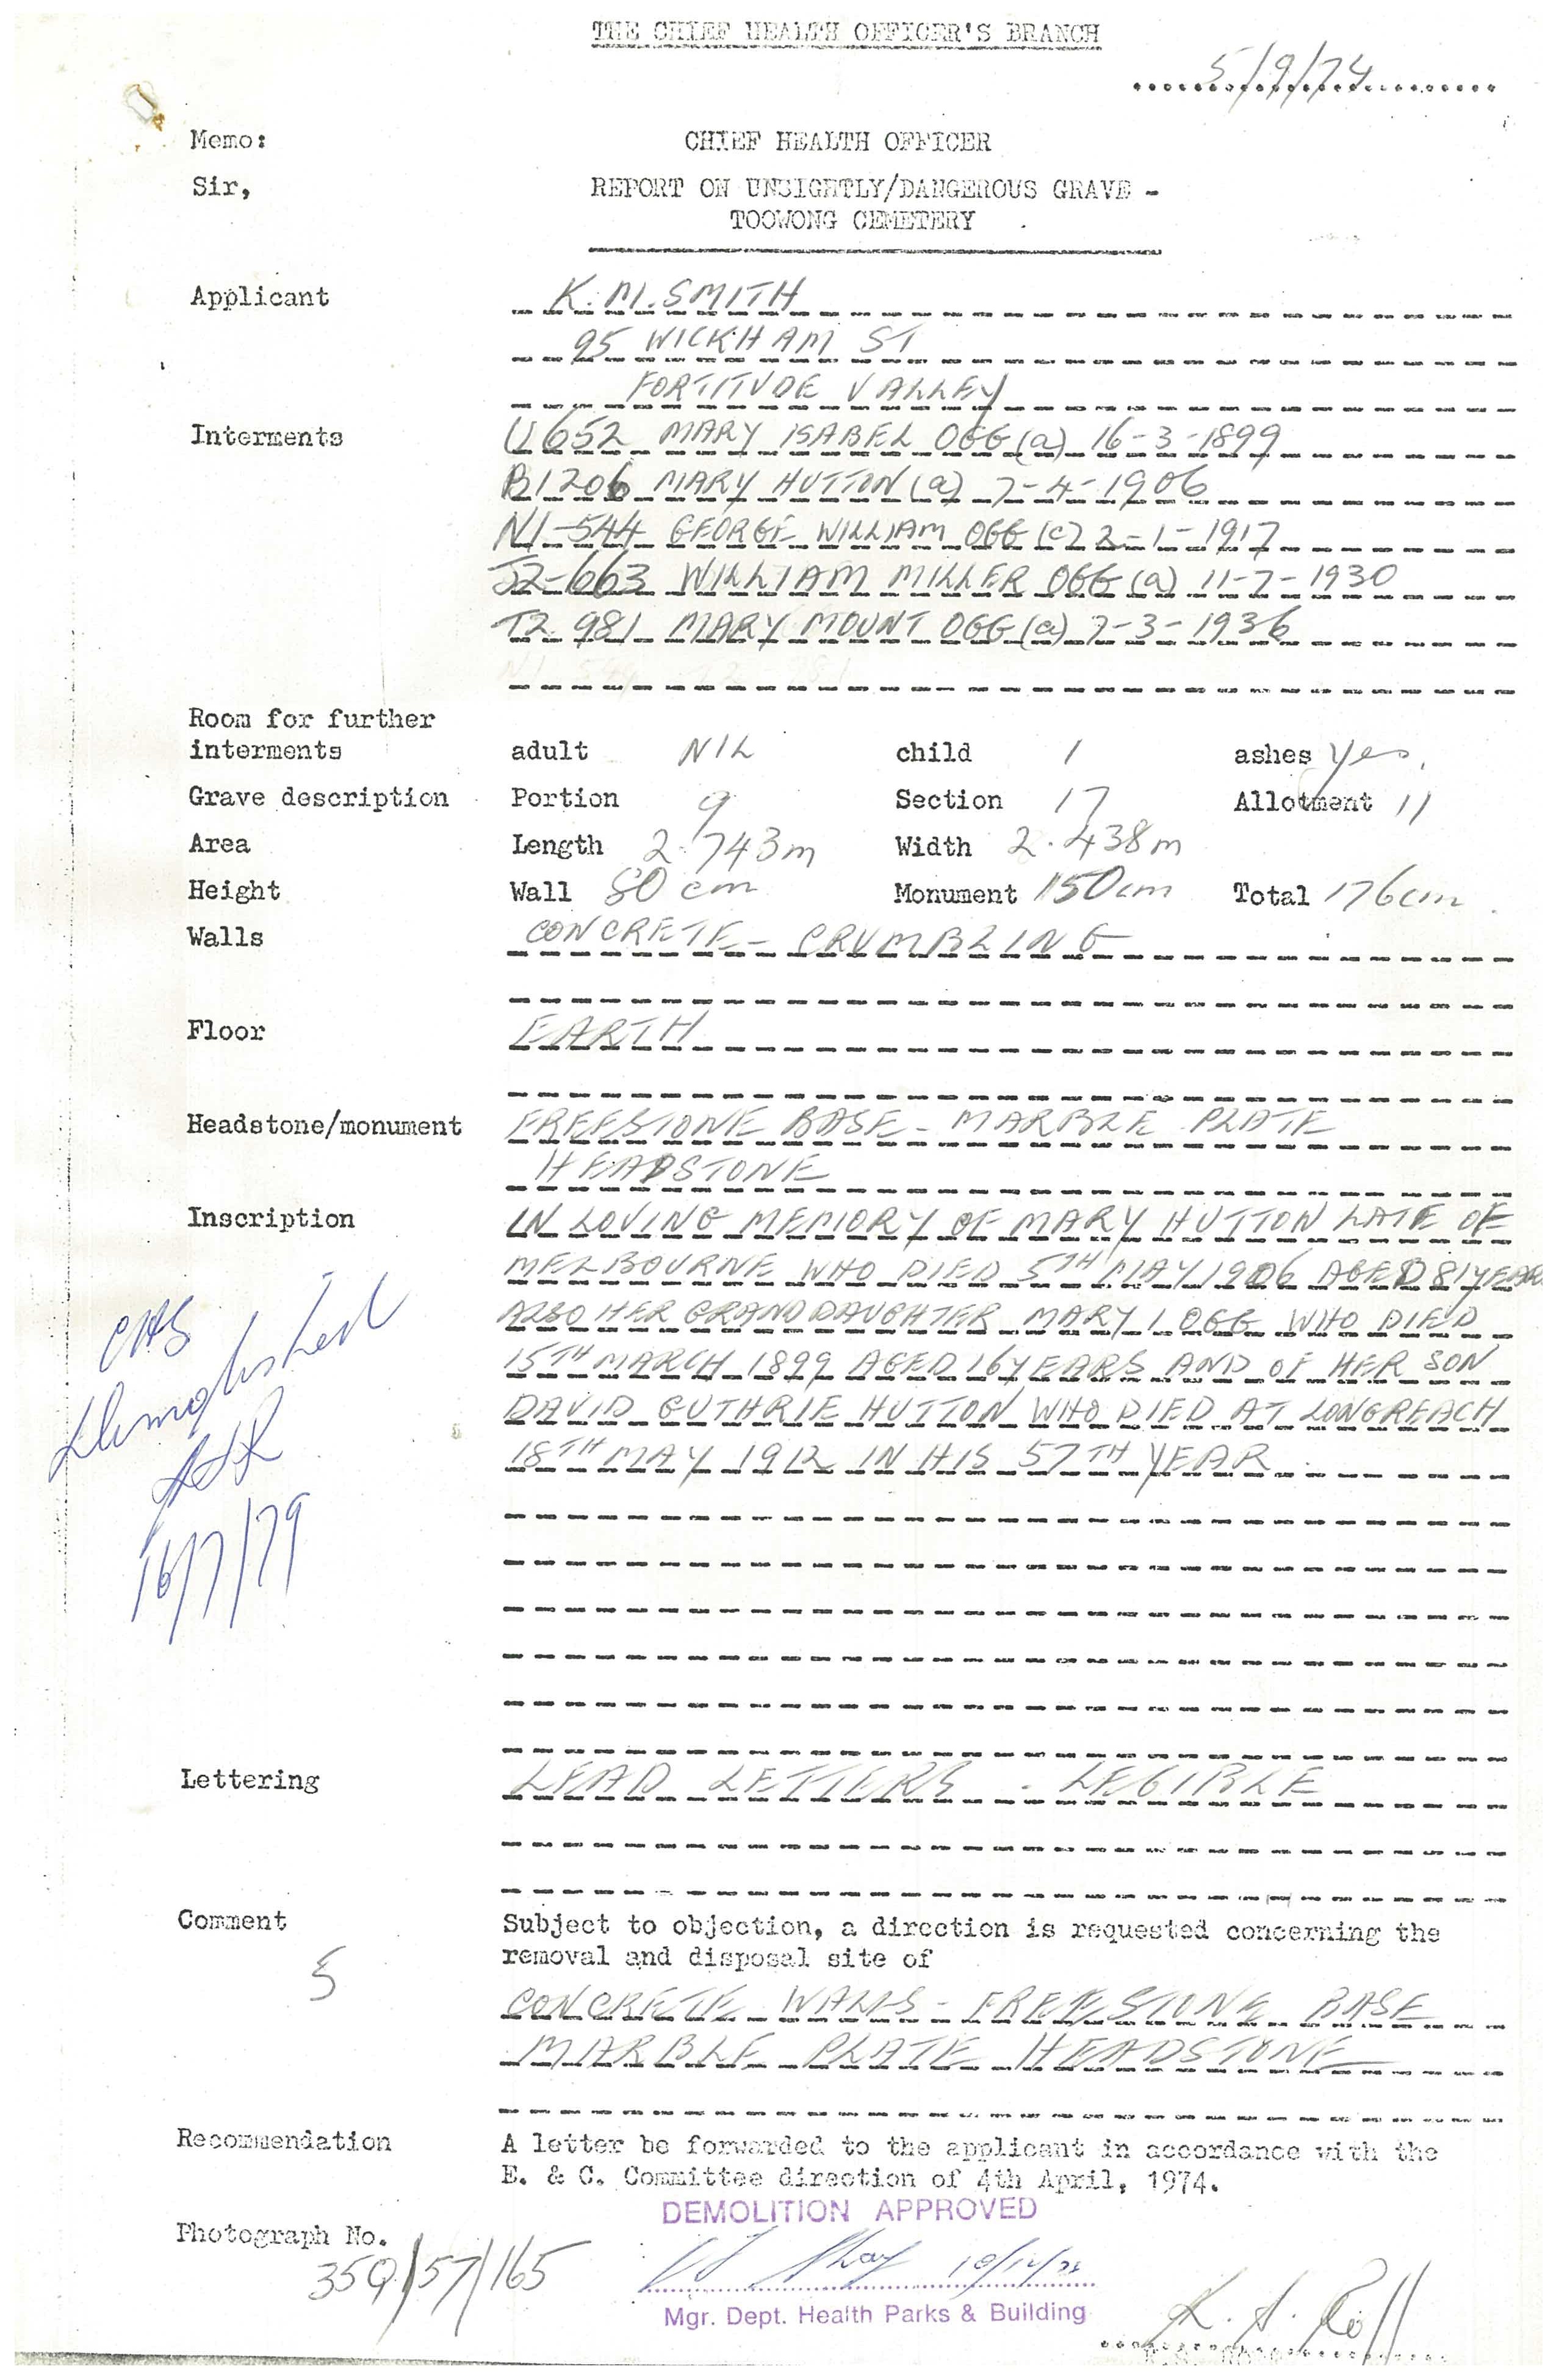 THE CHIEF HEALTH OFFICER'S BRANCH
5/9/74
Memo: CHIEF HEALTH OFFICER
Sir, REPORT ON UNSIGHTLY/DANGEROUS GRAVE -
TOOWONG CEMETERY
Applicant K. M. SMITH
95 WICKHAM ST
FORTITUDE VALLEY
Interments U652 MARY ISABEL OGG (a) 16-3-1899
B1206 MARY HUTTON (a) 7-4-1906
N1-544 GEORGE WILLIAM OGG (c) 2-1-1917
J2-663 WILLIAM MILLER OGG (a) 11-7-1930
T2 981 MARY MOUNT OGG (a) 7-3-1936
Room for further
interments adult NIL child 1 ashes yes.
Grave description Portion 9 Section 17 Allotment 11
Area Length 2.743m Width 2.438m
Height Wall 80 cm Monument 150cm Total 176cm.
Walls CONCRETE - CRUMBLING
Floor EARTH
Headstone/monument FREESTONE BASE - MARBLE PLATE
HEADSTONE
Inscription IN LOVING MEMORY OF MARY HUTTON LATE OF
MELBOURNE WHO DIED 5TH MAY 1906 AGED 81 YEARS
ALSO HER GRANDDAUGHTER MARY I OGG WHO DIED
15TH MARCH 1899 AGED 16 YEARS AND OF HER SON
DAVID GUTHRIE HUTTON WHO DIED AT LONGREACH
18TH MAY 1912 IN HIS 57TH YEAR
16/7/79
Lettering LEAD LETTERS - LEGIBLE
Comment Subject to objection, a direction is requested concerning the
removal and disposal site of
5
CONCRETE WALLS - FREESTONE BASE
MARBLE PLATE HEADSTONE
Recommendation A letter be forwarded to the applicant in accordance with the
E. & C. Committee direction of 4th April, 1974.
DEMOLITION APPROVED
Photograph No.
359/57/165
Mgr. Dept. Health Parks & Building